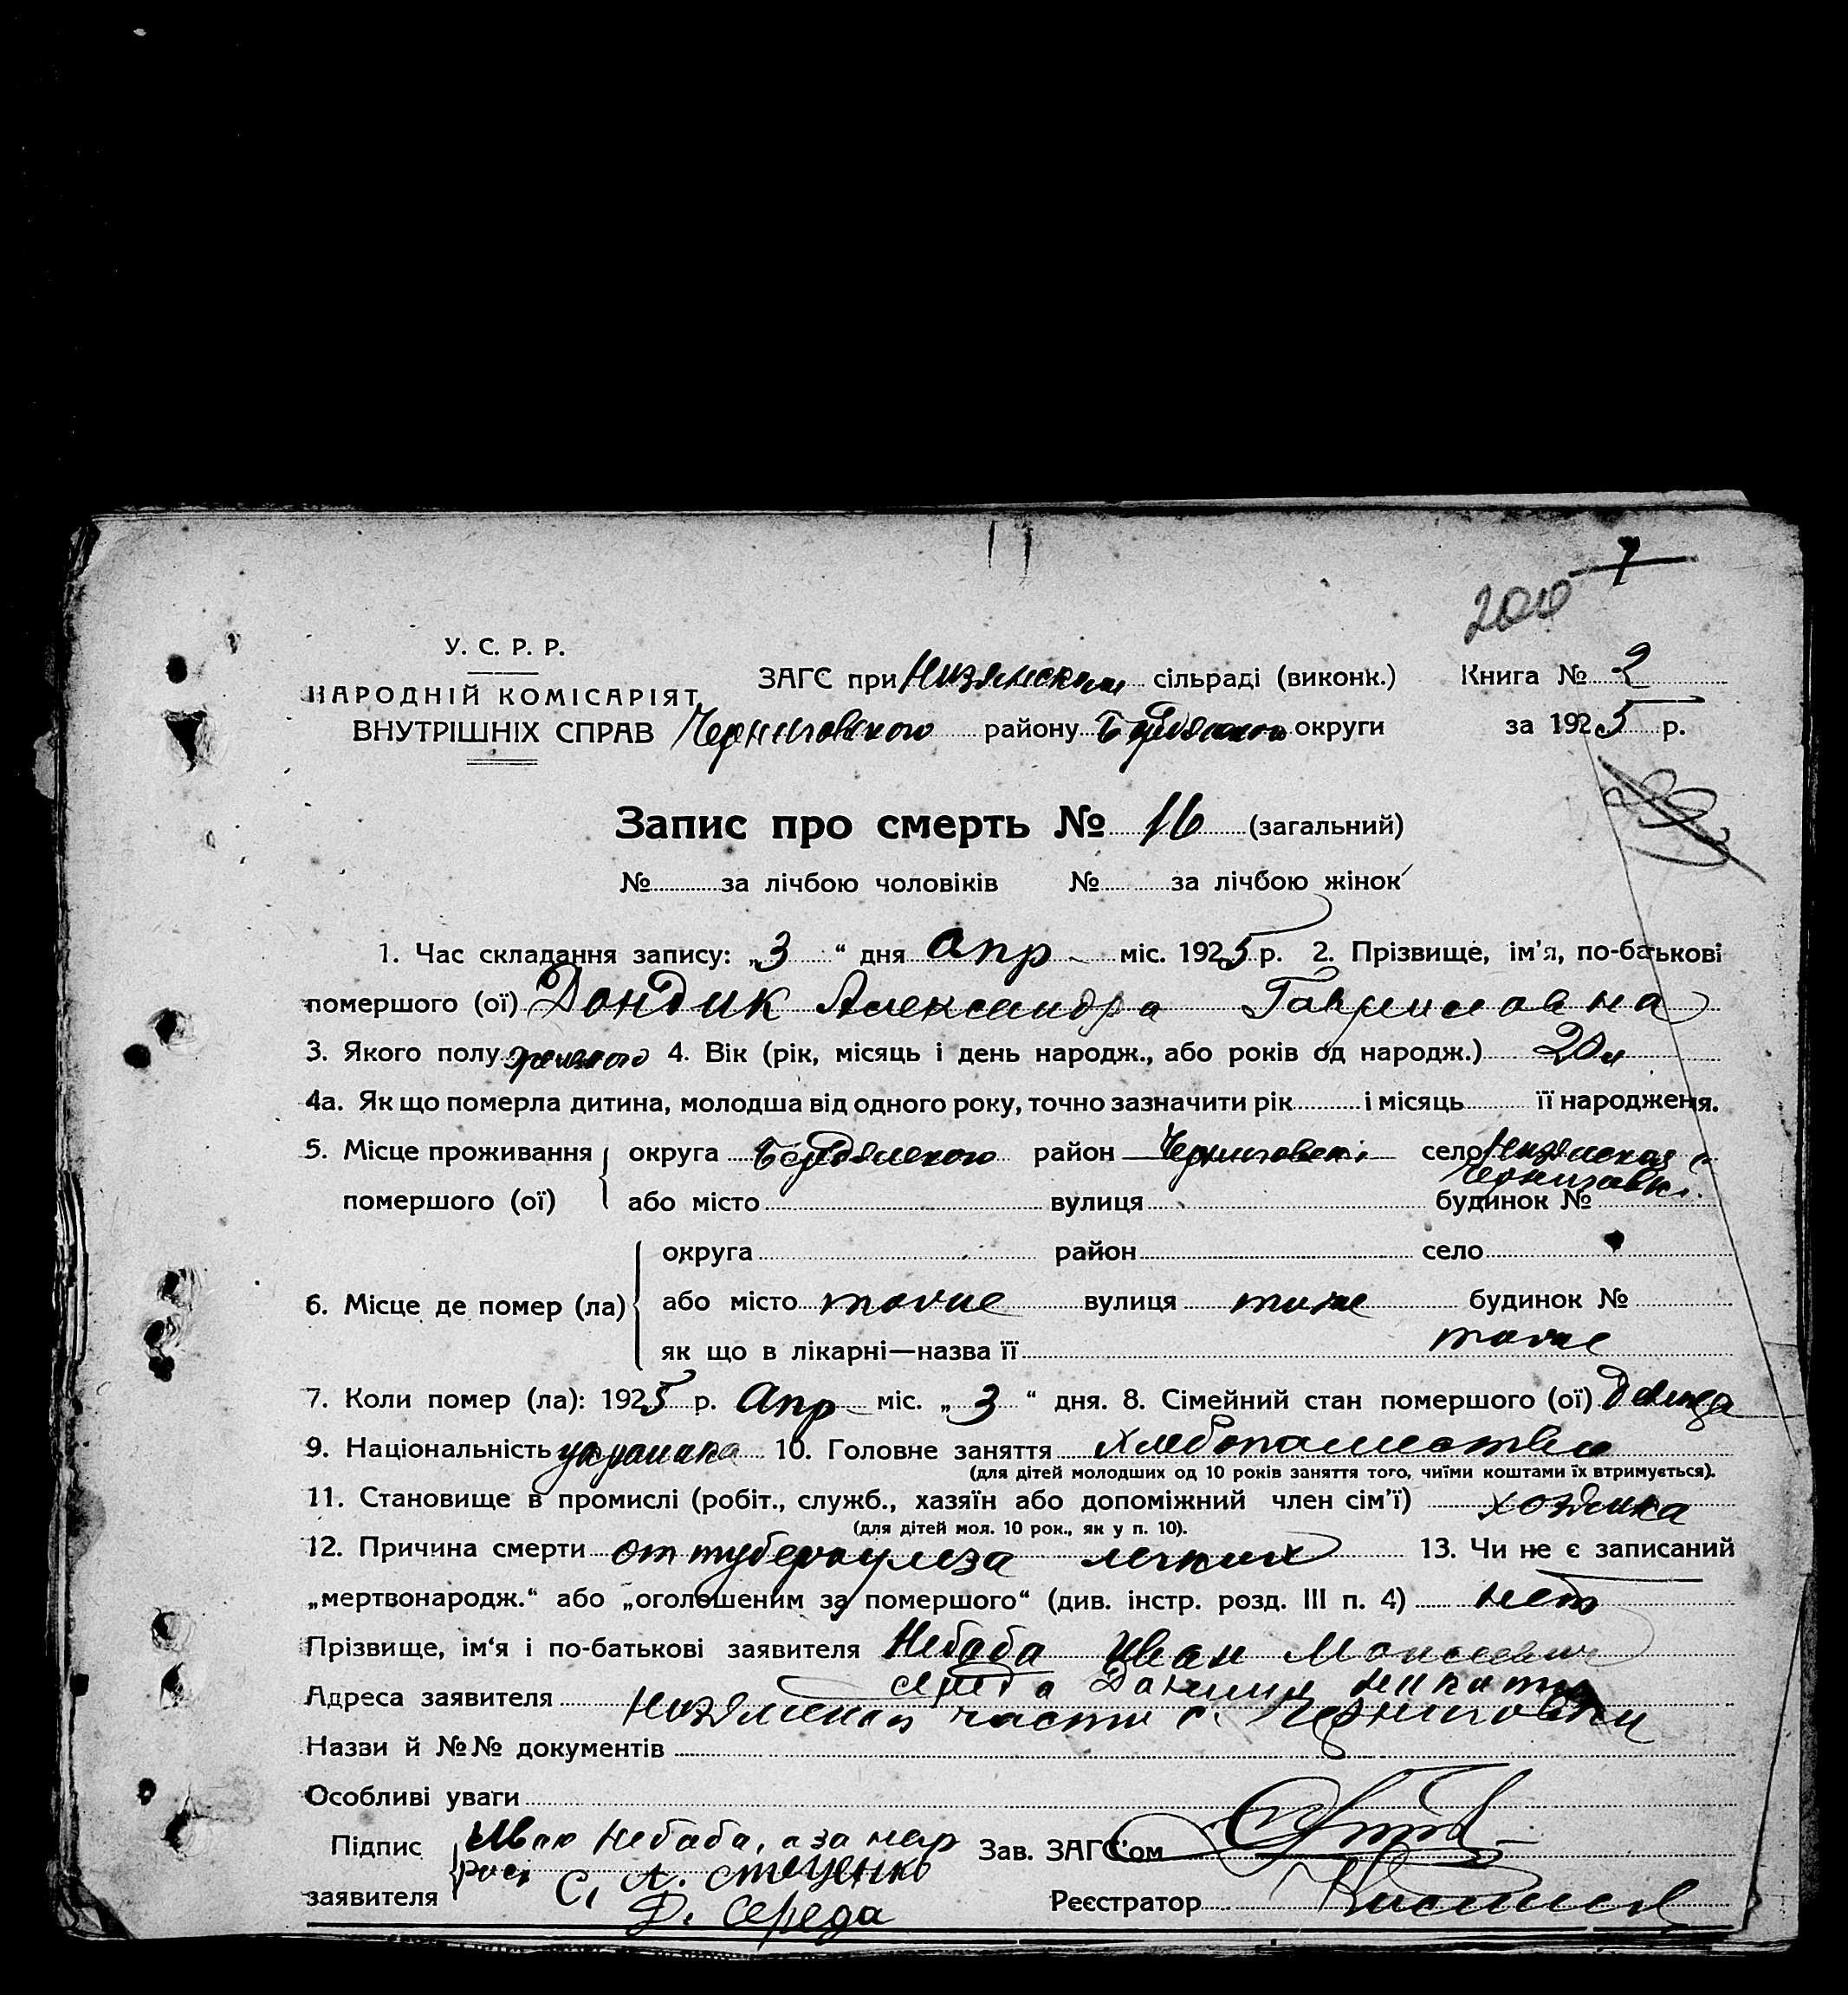 7
200
У. С. Р. Р.
НАРОДНІЙ КОМІСАРІЯТ
ВНУТРІШНІХ СПРАВ
ЗАГС при Низянском сільраді (виконк.) Книга № 2
Черниговского району Бердянского округи за 1925 р.
Запис про смерть № 16 (загальний)
№ за лічбою чоловіків № за лічбою жінок
1. Час складання запису: „3“ дня Апр міс. 1925 р. 2. Прізвище, ім’я, по-батькові
помершого (ої) Дондик Александра Гавриловна
3. Якого полу женского 4. Вік (рік, місяць і день народж., або років од народж.) 20 л
4а. Як що померла дитина, молодша від одного року, точно зазначити рік і місяць її народженя.
5. Місце проживання помершого (ої) округа Бердянского район Черниговскі село Низянская
Чернизовки
або місто вулиця будинок №
округа район село
6. Місце де помер (ла) або місто тоже вулиця тоже будинок №
як що в лікарні—назва її тоже
7. Коли помер (ла): 1925 р. Апр міс. „3“ дня. 8. Сімейний стан помершого (ої) девица
9. Національність украинка 10. Головне заняття хлебопашество
(для дітей молодших од 10 років заняття того, чиїми коштами їх втримується).
11. Становище в промислі (робіт., служб., хазяїн або допоміжний член сім’ї) хозяика
(для дітей мол. 10 рок., як у п. 10).
12. Причина смерти от туберкулеза легких 13. Чи не є записаний
„мертвонародж.“ або „оголошеним за помершого“ (див. інстр. розд. III п. 4) нет
Прізвище, ім‘я і по-батькові заявителя Небаба Иван Моисеевич
середа Даниил
Адреса заявителя Низянской части с. Черниговки
Назви й №№ документів
Особливі уваги
Підпис заявителя Иван Небаба, а за нег
рос. С. А. Стеценко
Д. Середа
Зав. ЗАГС’ом
Реєстратор